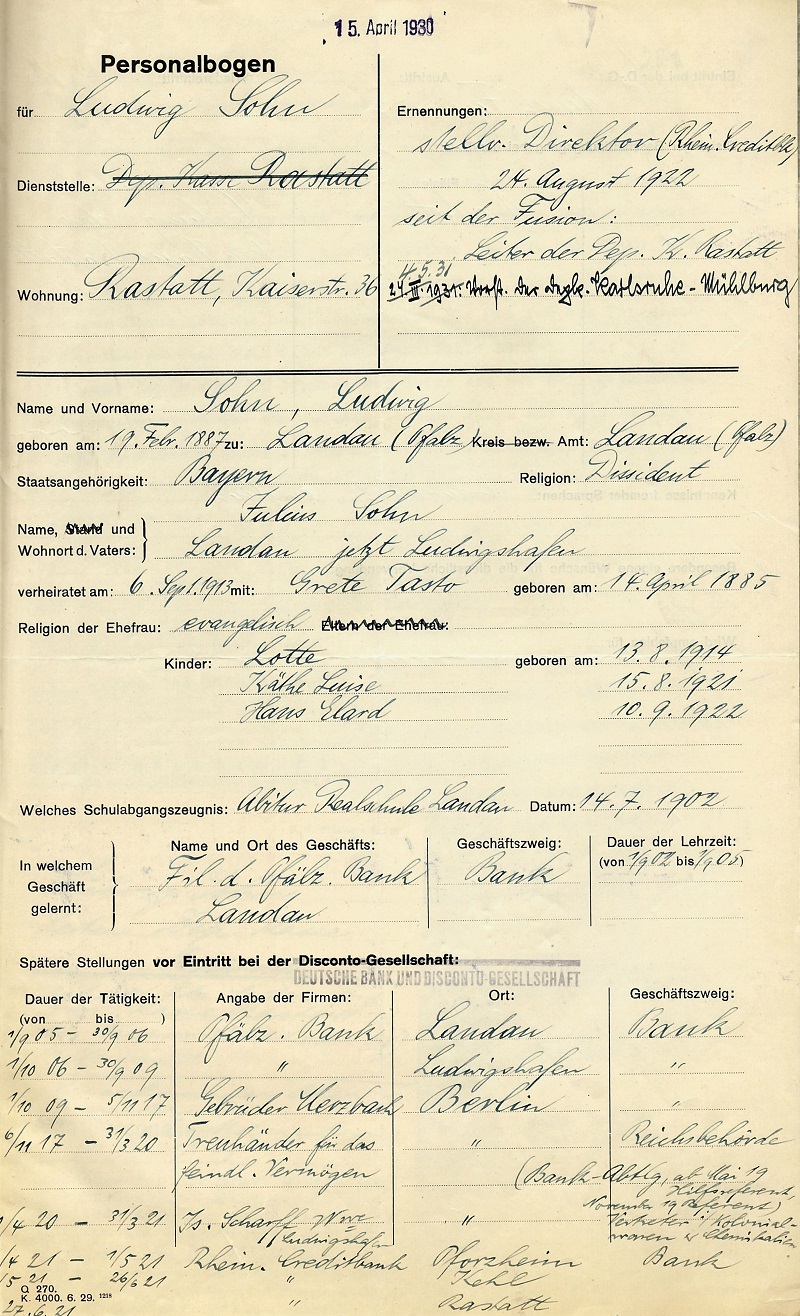 15. April 1930
Personalbogen
für Ludwig Sohn
Dienststelle: Dep. Kasse Rastatt
Wohnung: Rastatt, Kaiserstr. 36
Ernennungen:
stellv. Direktor (Rhein. Creditbk)
24. August 1922
seit der Fusion:
Leiter der Dep. K. Rastatt
4.5.31
24. III. 1931. Vorst. der Depk. Karlsruhe - Mühlburg
Name und Vorname: Sohn, Ludwig
geboren am: 19. Febr. 1887 zu: Landau (Pfalz) Kreis bezw. Amt: Landau (Pfalz)
Staatsangehörigkeit: Bayern Religion: Dissident
Name, Stand und Wohnort d. Vaters: Julius Sohn
Landau jetzt Ludwigshafen
verheiratet am: 6. Sept. 1913 mit: Grete Tasto geboren am: 14. April 1885
Religion der Ehefrau: evanglisch Eltern der Ehefrau:
Kinder: Lotte geboren am: 13.8.1914
Käthe Luise 15.8.1921
Hans Elard 10.9.1922
Welches Schulabgangszeugnis: Abitur Realschule Landau Datum: 14.7.1902
In welchem Geschäft gelernt:
Name und Ort des Geschäfts: Geschäftszweig: Dauer der Lehrzeit:
(von 1/9 02 bis 1/9 05)
Fil. d. Pfälz. Bank Bank
Landau
Spätere Stellungen vor Eintritt bei der Disconto-Gesellschaft:
DEUTSCHE BANK UND DISCONTO-GESELLSCHAFT
Dauer der Tätigkeit: Angabe der Firmen: Ort: Geschäftszweig:
(von bis )
1/9 05 - 30/9 06 Pfälz. Bank Landau Bank
1/10 06 - 30/9 09 " Ludwigshafen "
1/10 09 - 5/11 17 Gebrüder Merzbach Berlin "
6/11 17 - 31/3 20 Treuhänder für das " Reichsbehörde
feindl. Vermögen (Bank-Abtlg, ab Mai 19
Hilfsreferent,
November 19 Referent)
1/4 20 - 31/3 21 Is. Scharff " Vertreter / Kolonial-
Ludwigshafen waren u Chemikalien
1/4 21 - 1/5 21 Rhein. Creditbank Pforzheim Bank
/5 21 - 26/6 21 " Kehl
27.6.21 " Rastatt
Q 270.
K. 4000. 6. 29. 1218